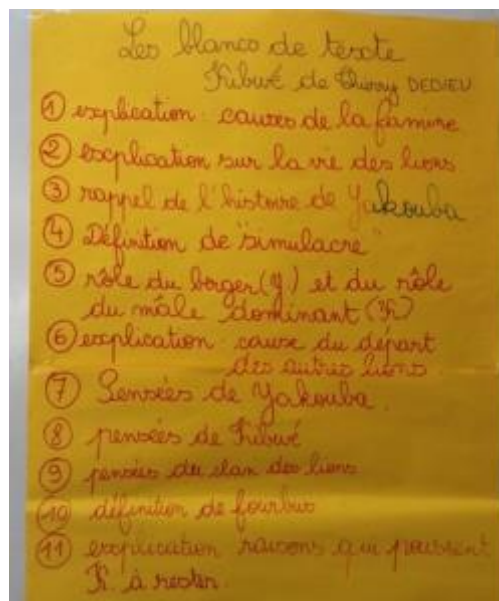 Les blancs de texte
Kibwé de Thierry DEDIEU
① explication causes de la famine
② explication sur la vie des lions
③ rappel de l'histoire de Yakouba
④ Définition de "simulacre"
⑤ rôle du berger (Y) et du rôle
du mâle dominant (K)
⑥ explication cause du départ
des autres lions
⑦ Pensées de Yakouba.
⑧ pensées de Kibwé
⑨ pensées du clan des lions
⑩ définition de fourbus
⑪ explication raisons qui poussent
K. à rester.